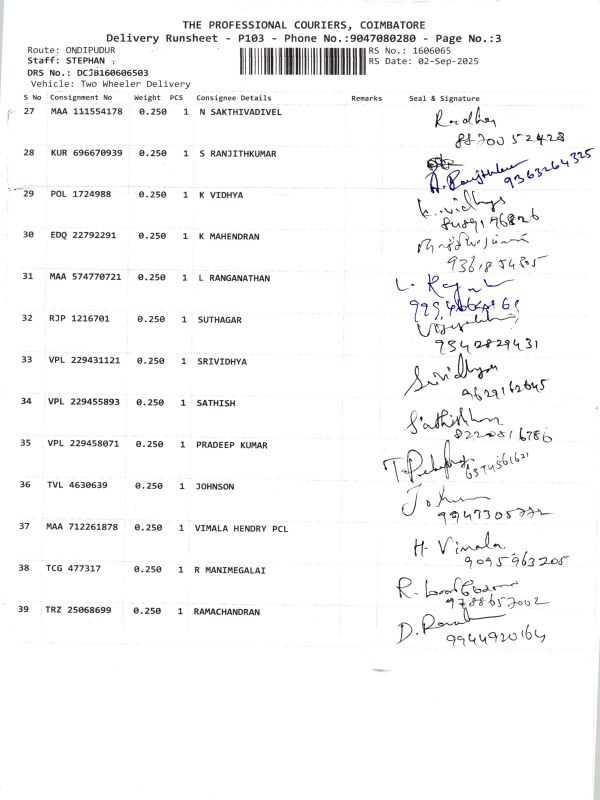 THE PROFESSIONAL COURIERS, COIMBATORE
Delivery Runsheet - P103 - Phone No.:9047080280 - Page No.:3
Route: ONDIPUDUR RS No.: 1606065
Staff: STEPHAN . RS Date: 02-Sep-2025
DRS No.: DCJB160606503
Vehicle: Two Wheeler Delivery
S No Consignment No Weight PCS Consignee Details Remarks Seal & Signature
27 MAA 111554178 0.250 1 N SAKTHIVADIVEL
8870052428
28 KUR 696670939 0.250 1 S RANJITHKUMAR
9363264325
29 POL 1724988 0.250 1 K VIDHYA
K. vidhya
30 EDQ 22792291 0.250 1 K MAHENDRAN
31 MAA 574770721 0.250 1 L RANGANATHAN
32 RJP 1216701 0.250 1 SUTHAGAR
9342829431
33 VPL 229431121 0.250 1 SRIVIDHYA
Srividhya
9629162645
34 VPL 229455893 0.250 1 SATHISH
35 VPL 229458071 0.250 1 PRADEEP KUMAR
6374561621
36 TVL 4630639 0.250 1 JOHNSON
37 MAA 712261878 0.250 1 VIMALA HENDRY PCL
H. Vimala
9095963205
38 TCG 477317 0.250 1 R MANIMEGALAI
9788657002
39 TRZ 25068699 0.250 1 RAMACHANDRAN
9944920164